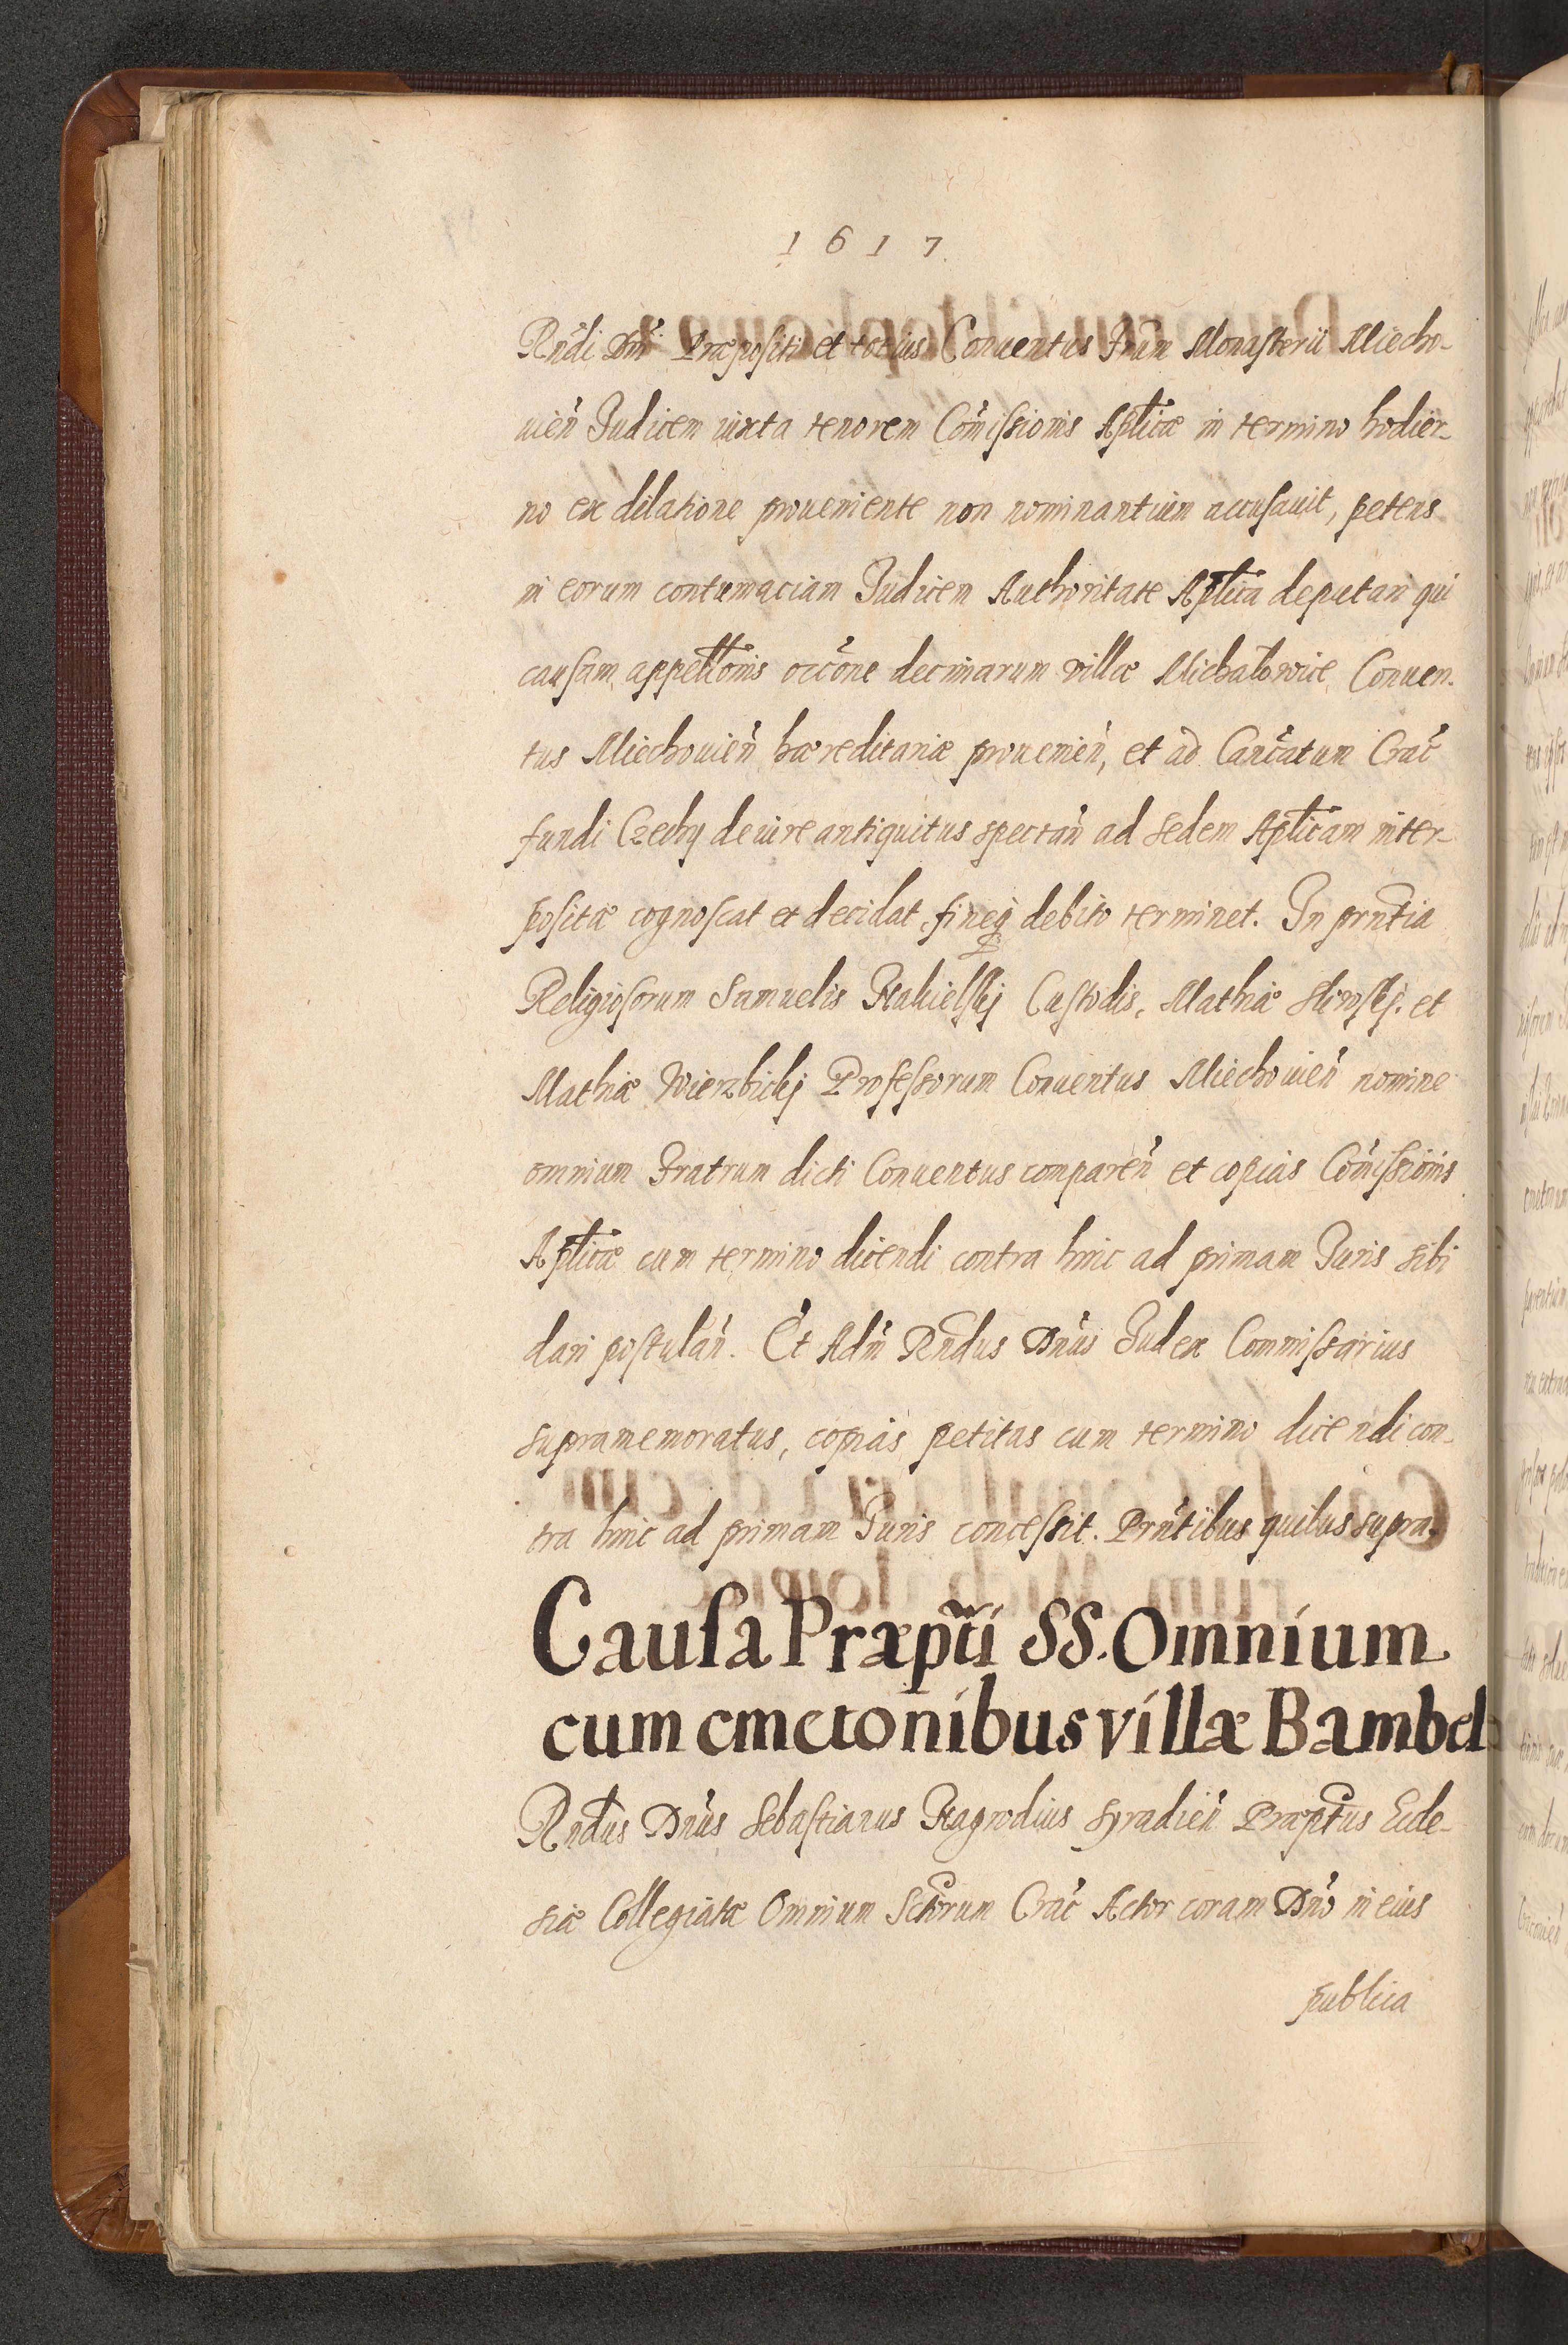 1617
Rndi Dni Præpositi et totius Conuentus Frũm Monasterii Miecho-
uieñ Judicem iuxta tenorem Com̃issionis Aplicæ in termino hodier-
no ex dilatione proueniente non nominantium accusauit, petens
in eorum contumaciam Judicem Authoritate Aplica deputari qui
causam appell̃onis occõne decimarum villæ Michałowice Conuen-
tus Miechouieñ hæreditariæ prouenieñ, et ad Canc̃atum Crac̃
fundi Czechy de iure antiquitus spectañ ad Sedem Aplicam inter-
positæ cognoscat et decidat, fineq debito terminet. In prñtia
Religiosorum Samuelis Nakielskj Custodis, Mathiæ et
Mathiæ Wierzbickj Professorum Conuentus Miechouieñ nomine
omnium Fratrum dicti Conuentus compareñ et copias Com̃issionis
Aplicæ cum termino dicendi contra hinc ad primam Juris sibi
dari postulañ. Et Adm̃ Rndus Dñus Judex Commissarius
supramemoratus, copias petitas cum termino dicendi con-
tra hinc ad primam Juris concessit. Prñtibus quibus supra.
Causa Præpti SS. Omnium
cum cmetonibus villæ Bambel
Rndus Dñus Sebastianus Nagrodius Syradieñ Præptus Eccle-
siæ Collegiatæ Omnium Sctorum Crac̃ Actor coram Dño in eius
publica